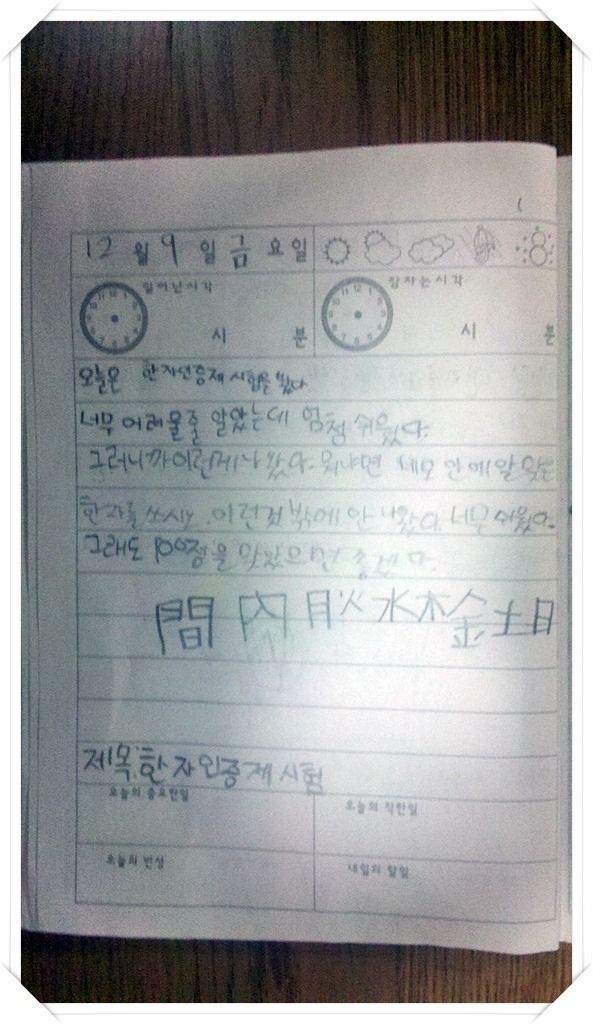 12 월 9 일 금 요일
일어난시각 시 분 잠자는시각 시 분
오늘은 한자인증제 시험을 봤다.
너무 어려울줄 알았는데 엄청 쉬웠다.
그러니까 이런게 나왔다. 뭐냐면 네모 안에 알맞은
한자를 쓰시오. 이런것 밖에 안 나왔다. 너무 쉬웠다.
그래도 100점을 맞았으면 좋겠다.
間 內 月 火 水 木 金 土 日
제목:한자인증제 시험
오늘의 중요한일 오늘의 착한일
오늘의 반성 내일의 할일